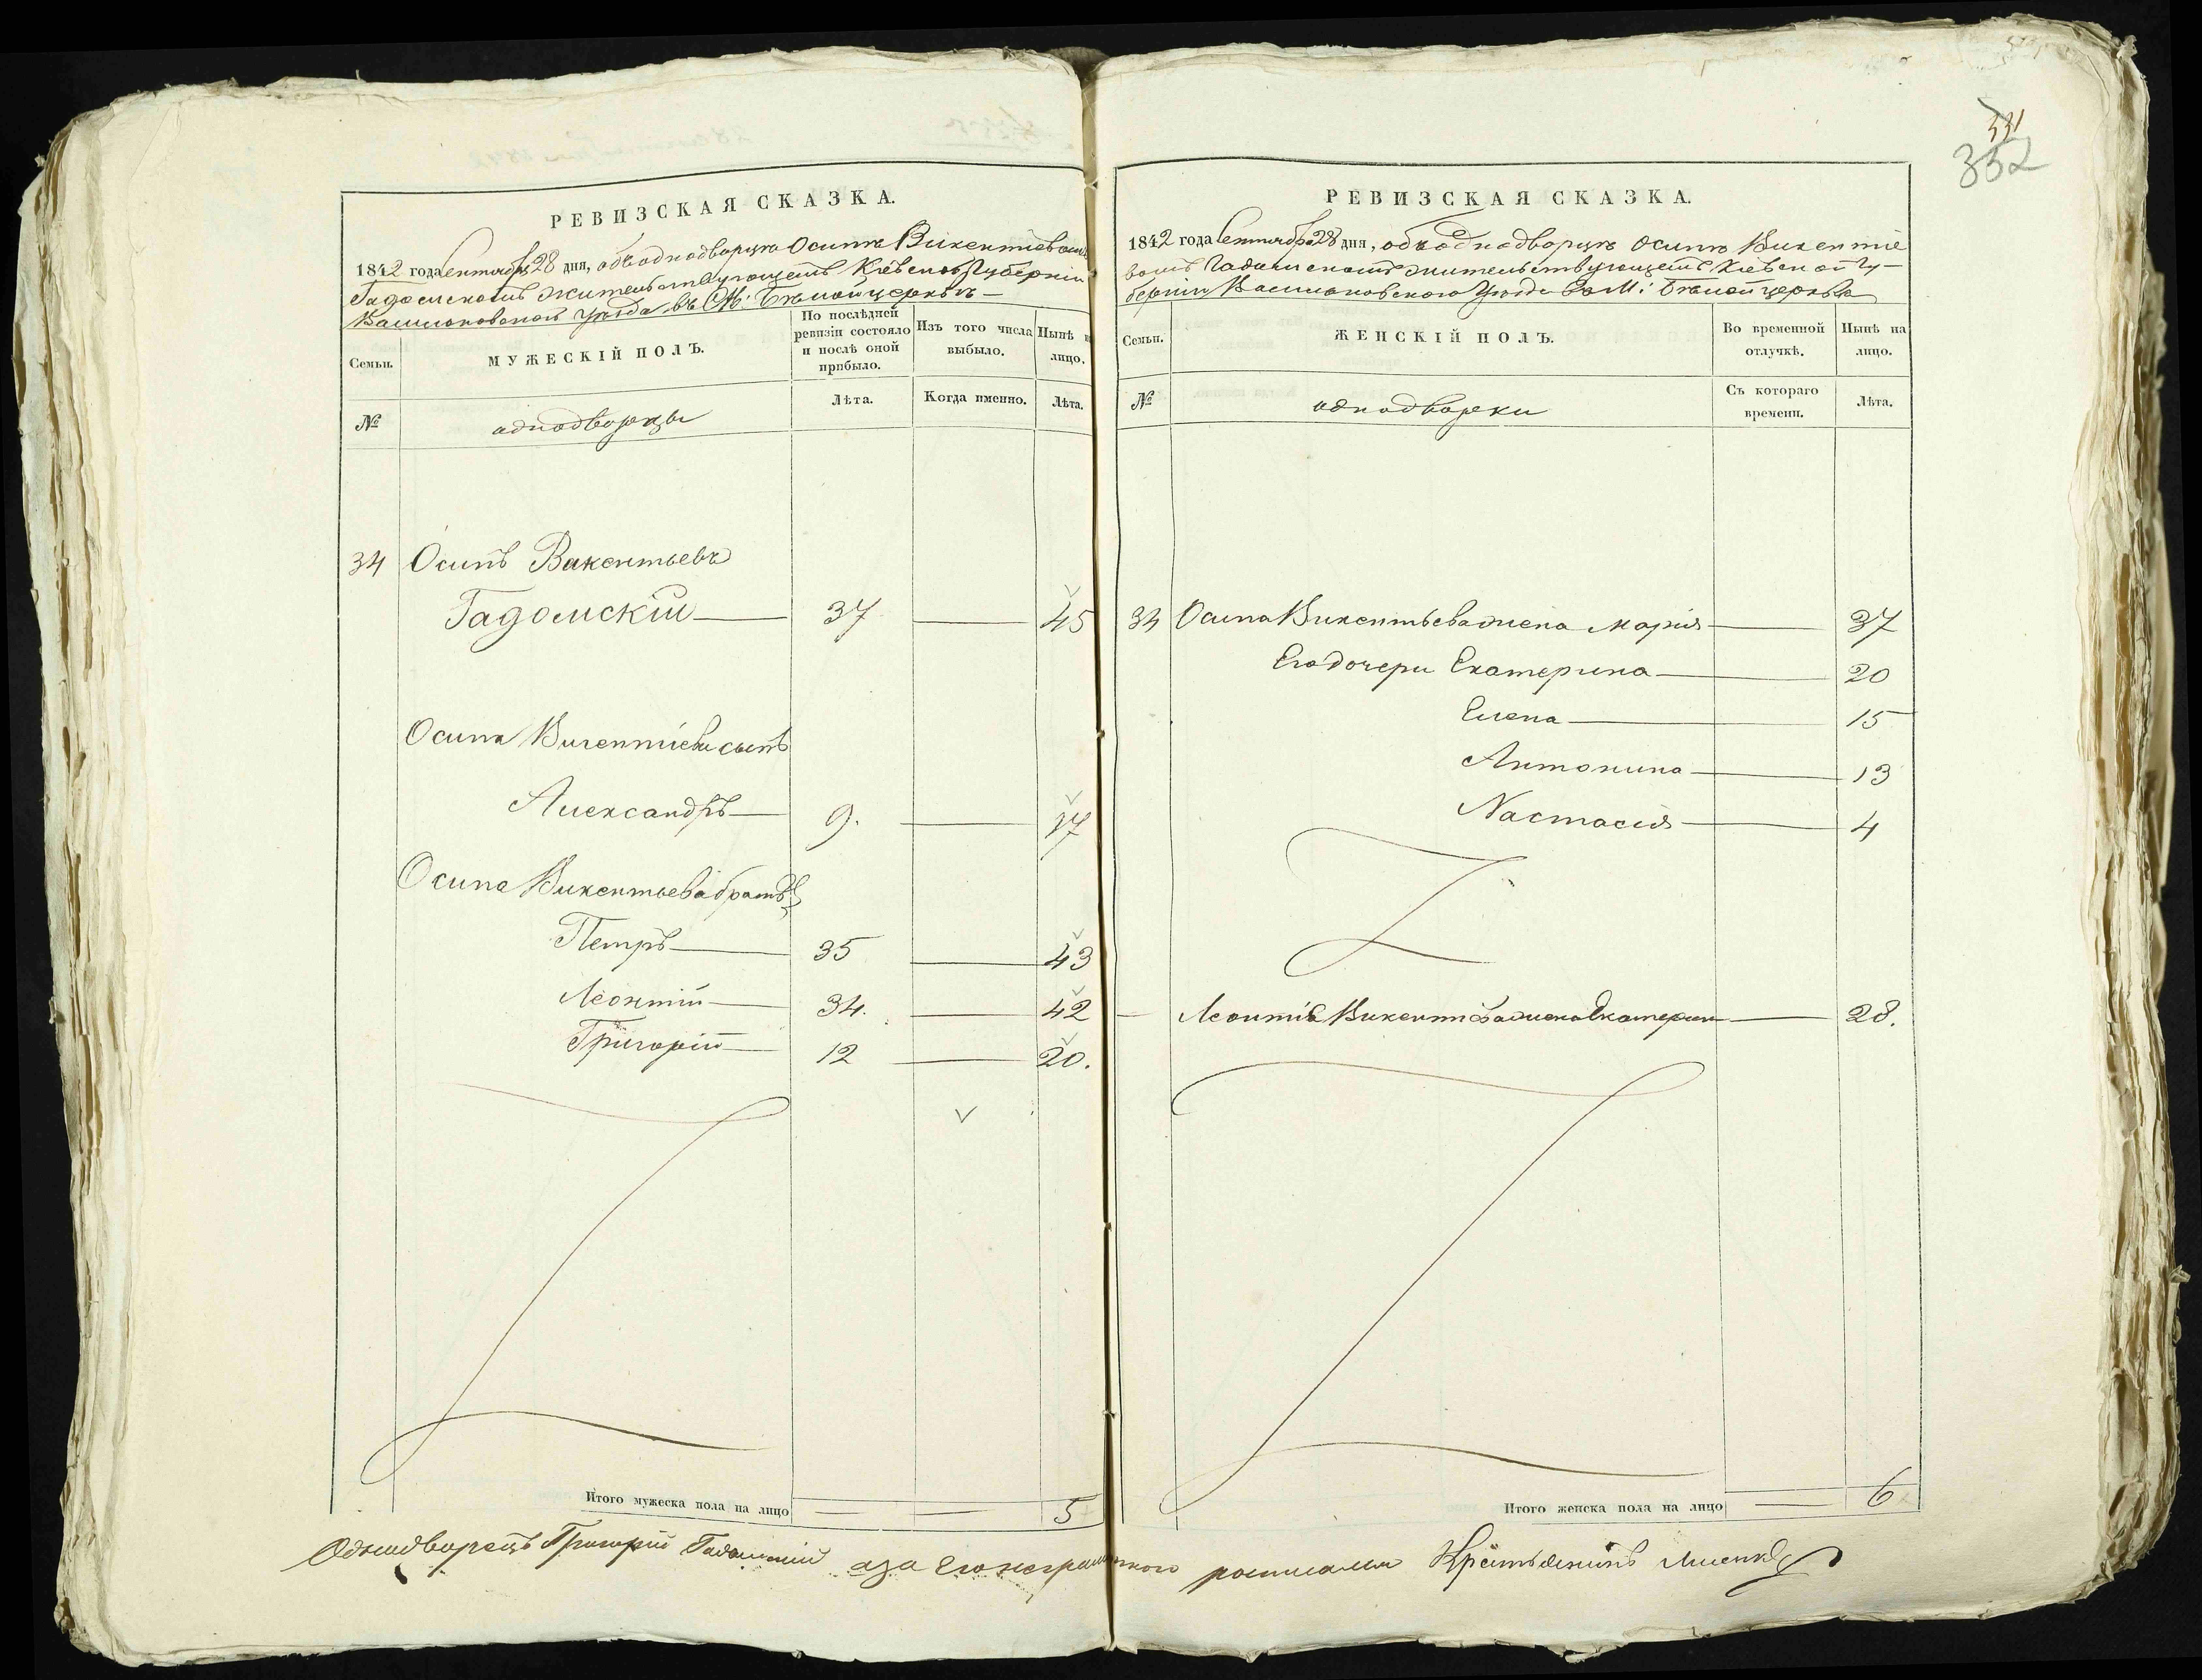 РЕВИЗСКАЯ СКАЗКА.
1842 года Сентября 28 дня, объ однодворцѣ Осипѣ Викентіевомъ
Гадомскомъ жительствующемъ Кіевской Губерніи
Васильковскаго Уѣзда въ М: Бѣлой церкьвѣ
Семьи.
МУЖЕСКІЙ ПОЛЪ.
По послѣдней ревизіи состояло и послѣ оной прибыло.
Изъ того числа выбыло.
Нынѣ на лицо.
№
однодворцы
Лѣта.
Когда именно.
Лѣта.
34 Осипъ Викентьевъ
Гадомскій 37 45
Осипа Викентіева сынъ
Александръ 9. 17
Осипа Викентьева братья
Петръ 35 43
Леонтій 34. 42
Григорій 12 20.
Итого мужеска пола на лицо 5
331
332
РЕВИЗСКАЯ СКАЗКА.
1842 года Сентября 28 дня, объ однодворцѣ Осипѣ Викентіе
вомъ Гадомскомъ жительствующемъ Кіевской Гу-
берніи Васильковскаго Уѣзда въ М: Бѣлой церквѣ
Семьи.
ЖЕНСКІЙ ПОЛЪ.
Во временной отлучкѣ.
Нынѣ на лицо.
№
однодворки
Съ котораго времени.
Лѣта.
34 Осипа Викентьева жена Марія 37
Его дочери Екатерина 20
Елена 15
Антонина 13
Настасія 4
Леонтія Викентіева жена Екатерина 28.
Итого женска пола на лицо 6
Однодворецъ Григорій Гадомскій а за его неграмотного росписался